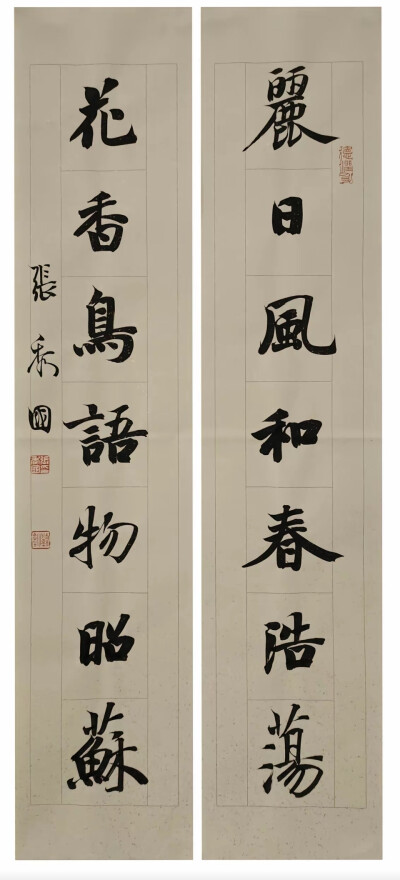 麗日風和春浩蕩
花香鳥語物昭蘇
張秀國